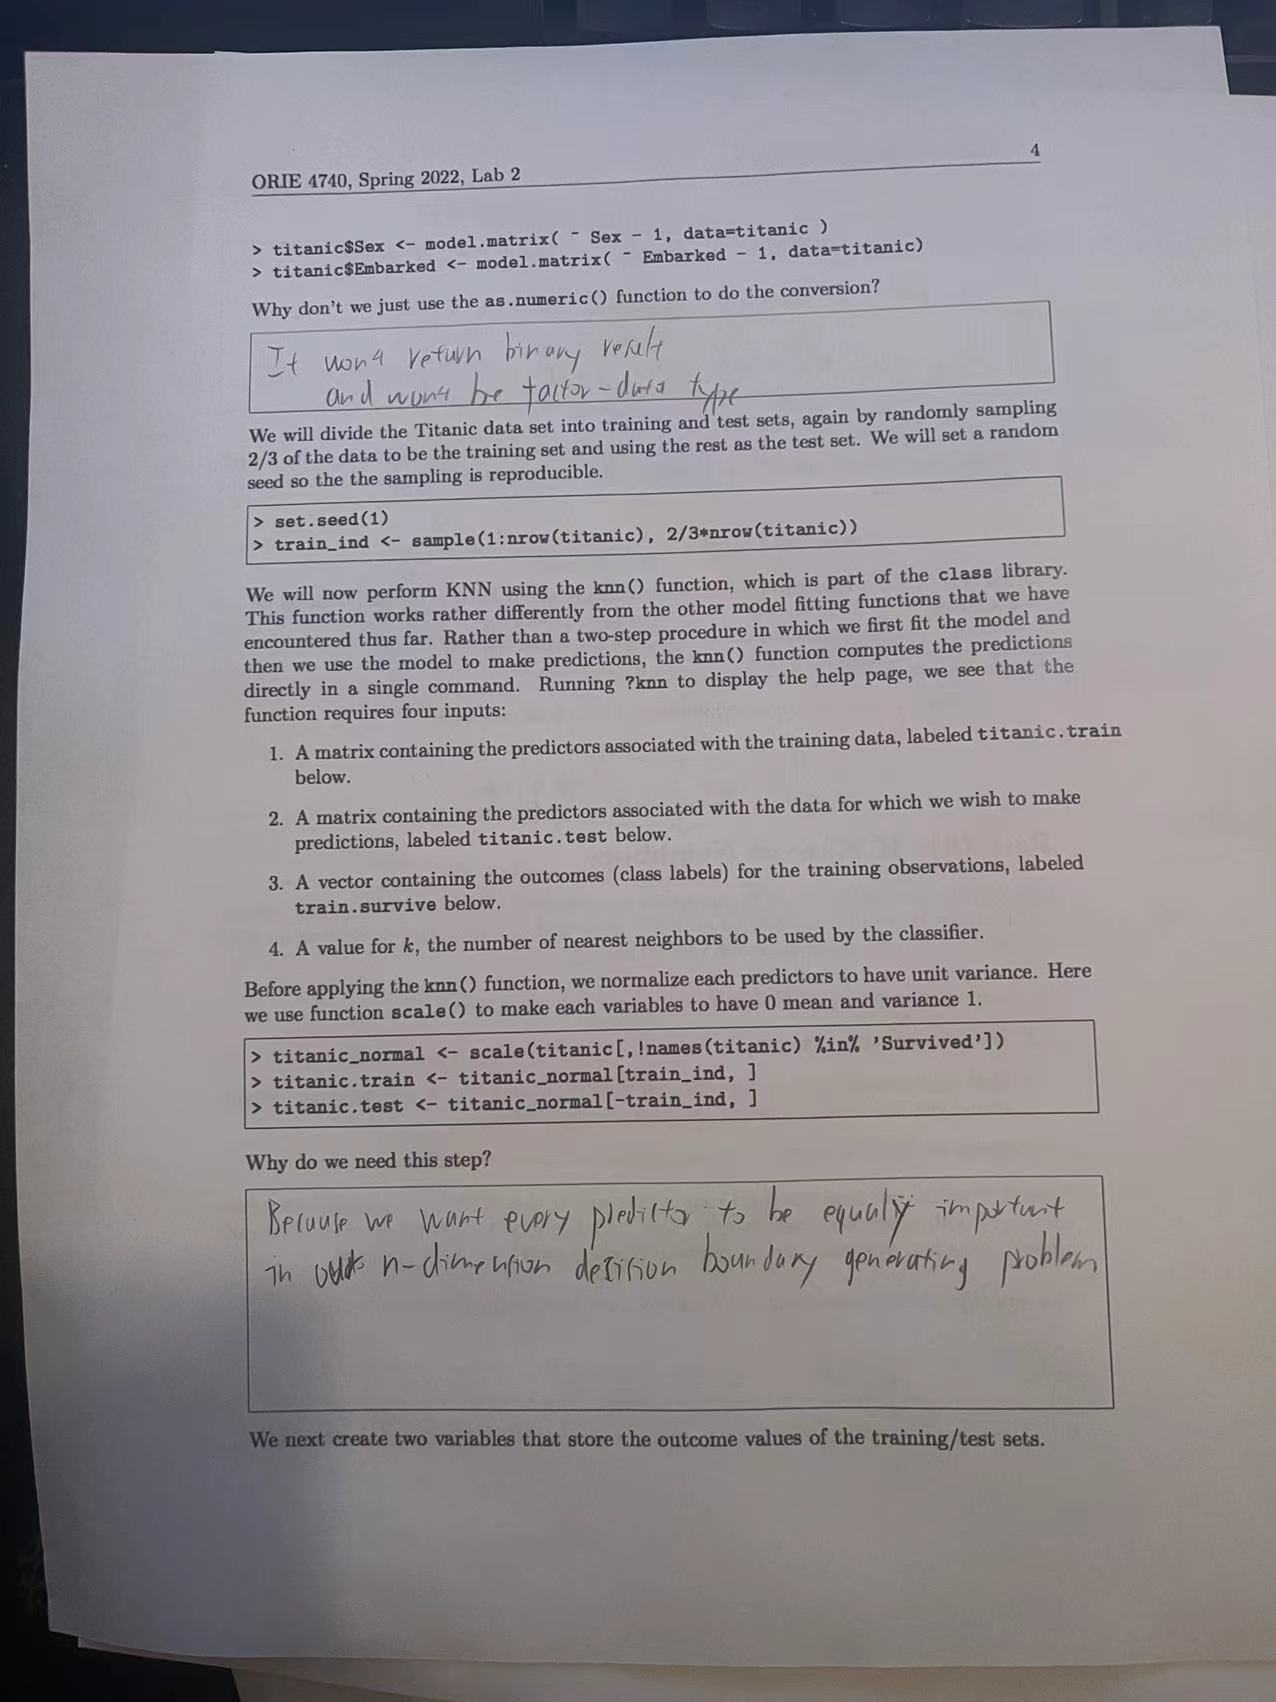 4
ORIE 4740, Spring 2022, Lab 2
> titanic$Sex <- model.matrix( ~ Sex - 1, data=titanic )
> titanic$Embarked <- model.matrix( ~ Embarked - 1, data=titanic)
Why don't we just use the as.numeric() function to do the conversion?
It won't return binary result
and won't be factor-data type
We will divide the Titanic data set into training and test sets, again by randomly sampling
2/3 of the data to be the training set and using the rest as the test set. We will set a random
seed so the the sampling is reproducible.
> set.seed(1)
> train_ind <- sample(1:nrow(titanic), 2/3*nrow(titanic))
We will now perform KNN using the knn() function, which is part of the class library.
This function works rather differently from the other model fitting functions that we have
encountered thus far. Rather than a two-step procedure in which we first fit the model and
then we use the model to make predictions, the knn() function computes the predictions
directly in a single command. Running ?knn to display the help page, we see that the
function requires four inputs:
1. A matrix containing the predictors associated with the training data, labeled titanic.train
below.
2. A matrix containing the predictors associated with the data for which we wish to make
predictions, labeled titanic.test below.
3. A vector containing the outcomes (class labels) for the training observations, labeled
train.survive below.
4. A value for k, the number of nearest neighbors to be used by the classifier.
Before applying the knn() function, we normalize each predictors to have unit variance. Here
we use function scale() to make each variables to have 0 mean and variance 1.
> titanic_normal <- scale(titanic[,!names(titanic) %in% 'Survived'])
> titanic.train <- titanic_normal[train_ind, ]
> titanic.test <- titanic_normal[-train_ind, ]
Why do we need this step?
Because we want every predictor to be equally important
in n-dimension decision boundary generating problem
We next create two variables that store the outcome values of the training/test sets.